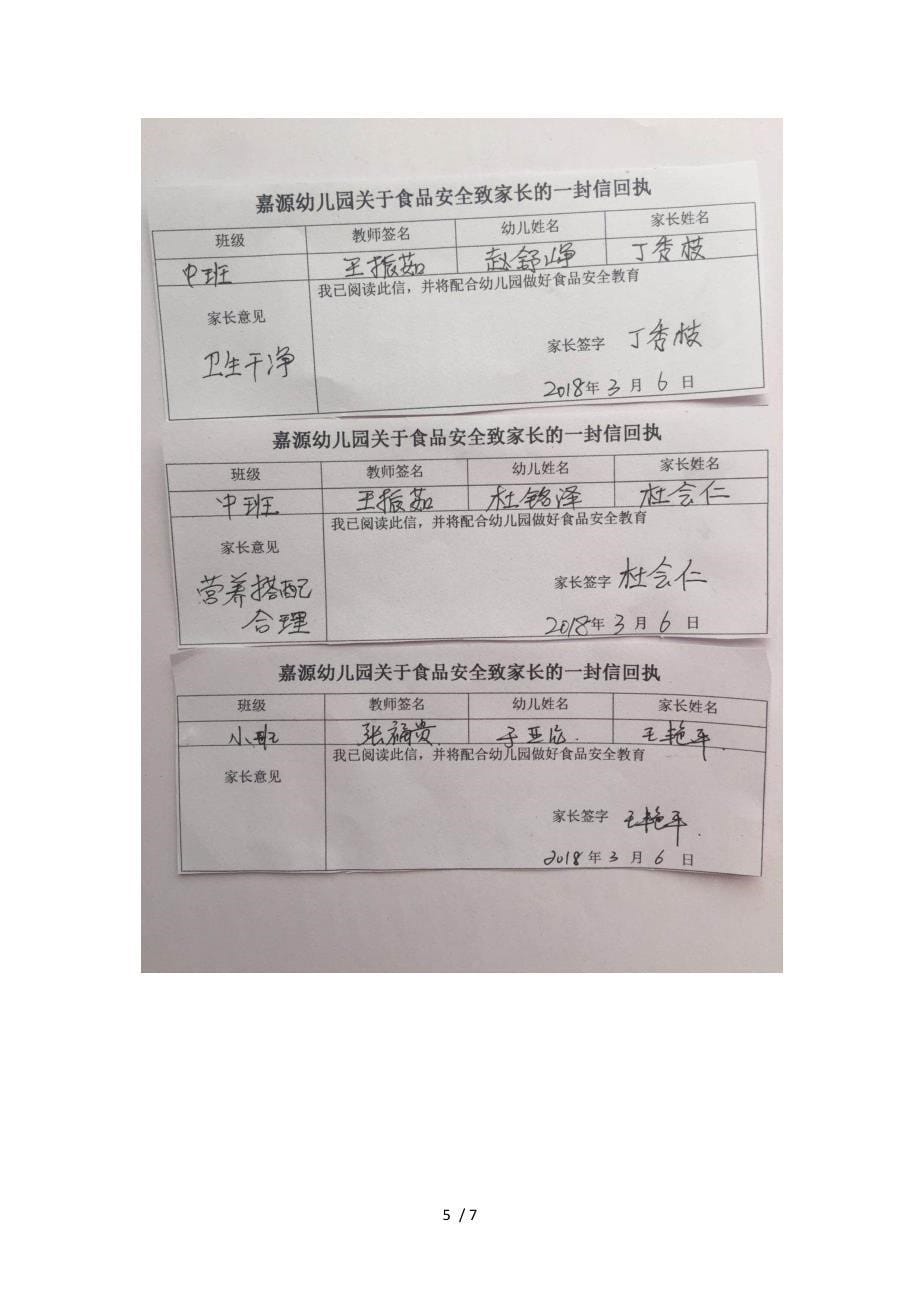 嘉源幼儿园关于食品安全致家长的一封信回执
班级 教师签名 幼儿姓名 家长姓名
中班 王振茹 赵舒峥 丁秀枝
我已阅读此信，并将配合幼儿园做好食品安全教育
家长意见
卫生干净
家长签字 丁秀枝
2018年 3 月 6 日
嘉源幼儿园关于食品安全致家长的一封信回执
班级 教师签名 幼儿姓名 家长姓名
中班 王振茹 杜铭泽 杜会仁
我已阅读此信，并将配合幼儿园做好食品安全教育
家长意见
营养搭配
合理
家长签字 杜会仁
2018年 3 月 6 日
嘉源幼儿园关于食品安全致家长的一封信回执
班级 教师签名 幼儿姓名 家长姓名
小班 张福贵 于亚 王艳平
我已阅读此信，并将配合幼儿园做好食品安全教育
家长意见
家长签字 王艳平
2018 年 3 月 6 日
5 / 7